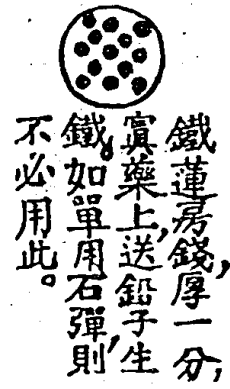 鐵蓮房錢厚一分,
實藥上,送鉛子生
鐵。如單用石彈,則
不必用此。